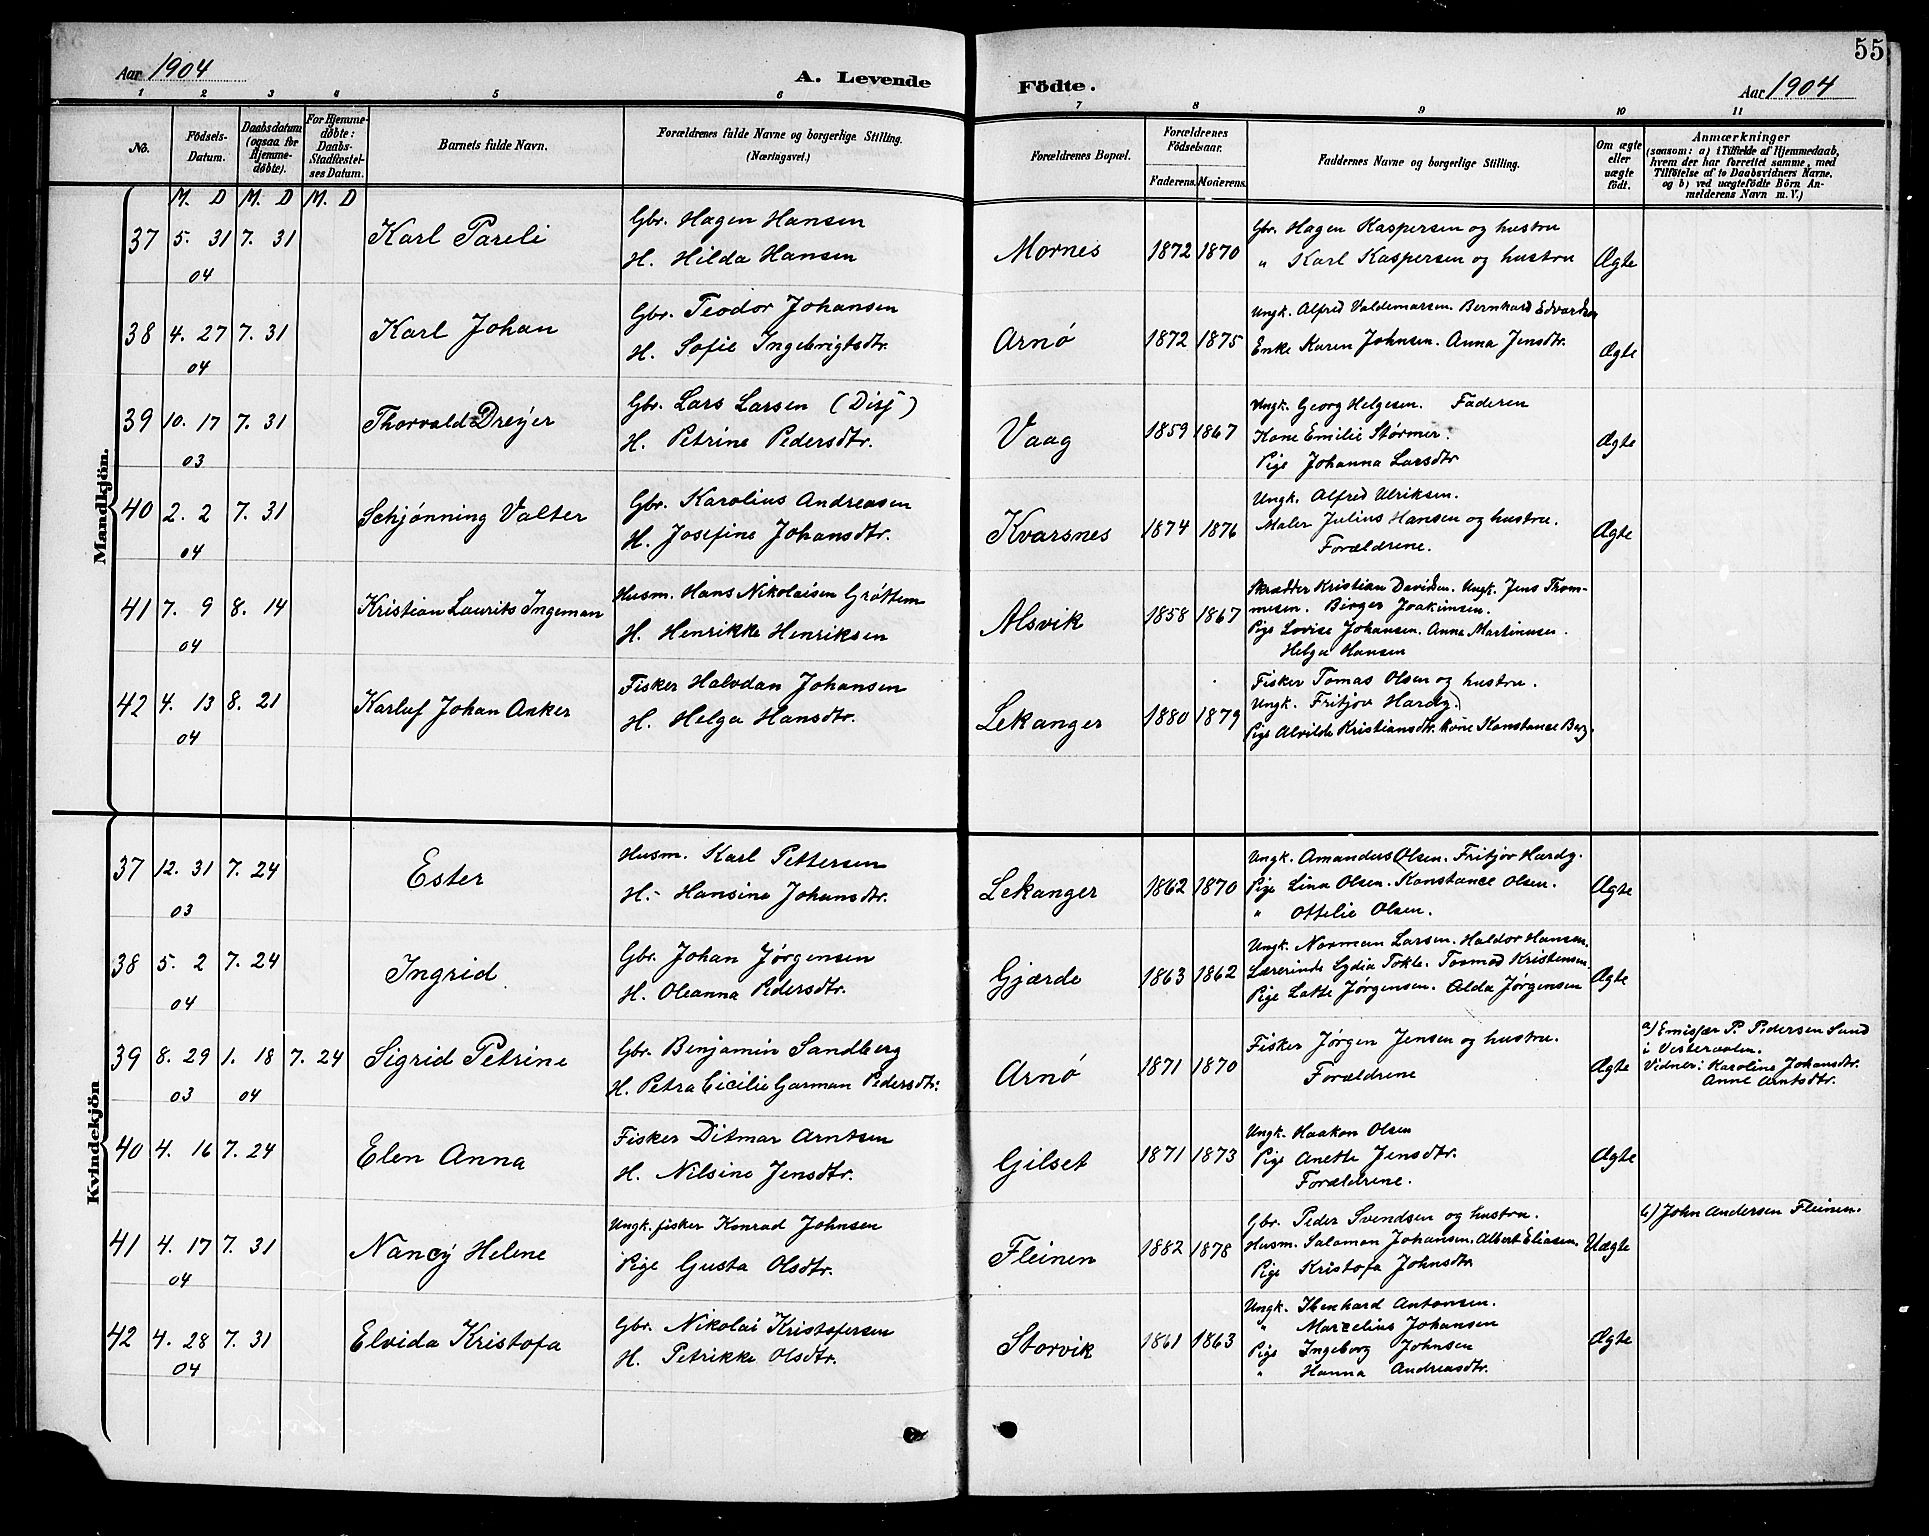 55
Aar 1904
A. Levende
Födte.
Aar 1904
1 2 3 4 5 6 7 8 9 10 11
No.
Födsels-
Datum.
Daabsdatum
(ogsaa for
Hjemme-
døbte).
For Hjemme-
døbte:
Daabs-
Stadfæstel-
ses Datum.
Barnets fulde Navn.
Forældrenes fulde Navne og borgerlige Stilling.
(Næringsvei.)
Forældrenes Bopæl.
Forældrenes
Födselsaar.
Faderens. Moderens.
Faddernes Navne og borgerlige Stilling.
Om ægte
eller
uægte
födt.
Anmærkninger
(saasom: a) i Tilfælde af Hjemmedaab,
hvem der har forrettet samme, med
Tilföielse af to Daabsvidners Navne.
og b) ved uægtefödte Börn An-
melderens Navn m. V.)
M. D M. D M. D
Mandkjön.
37 5. 31 7. 31
04
Karl Pareli
Gbr. Hagen Hansen
H. Hilda Hansen
Mornes 1872 1870
Gbr. Hagen Kaspersen og hustru
" Karl Kaspersen og hustru
Ægte
38 4. 27 7. 31
04
Karl Johan
Gbr. Teodor Johansen
H. Sofie Ingebrigtsdtr.
Arnø 1872 1875
Ungk. Alfred Valdemarsen. Bernhard Edvardsen
Enke Karen Johnsen. Anna Jensdtr.
Ægte
39 10. 17 7. 31
03
Thorvald Dreyer
Gbr. Lars Larsen (Disj)
H. Petrine Pedersdtr.
Vaag 1859 1867
Ungk. Georg Helgesen. Faderen
Kone Emilie Størmer.
Pige Johanna Larsdtr
Ægte
40 2. 2 7. 31
04
Schjønning Valter
Gbr. Karolius Andreasen
H. Josefine Johansdtr.
Kvarsnes 1874 1876
Ungk. Alfred Ulriksen.
Maler Julius Hansen og hustru.
Forældrene.
Ægte
41 7. 9 8. 14
04
Kristian Laurits Ingeman
Husm. Hans Nikolaisen Grøttem
H. Henrikke Henriksen
Alsvik 1858 1867
Skrædder Kristian Davidsen. Ungk. Jens Thom-
mesen. Birger Joakimsen.
Pige Lovise Johansen. Anna Martinusen.
Helga Hansen
42 4. 13 8. 21
04
Karluf Johan Anker
Fisker Halvdan Johansen
H. Helga Hansdtr.
Lekanger 1880 1879
Fisker Tomas Olsen og hustru.
Ungk. Fritjov Hardy.
Pige Alvilde Kristiansdtr. Kone Konstance Berg.
Kvindekjön
37 12. 31 7. 24
03
Ester
Husm. Karl Pettersen
H. Hansine Johansdtr.
Lekanger 1862 1870
Ungk. Amandus Olsen. Fritjov Hardy.
Pige Lina Olsen. Konstance Olsen.
" Ottelie Olsen.
Ægte
38 5. 2 7. 24
04
Ingrid
Gbr. Johan Jørgensen
H. Oleanna Pedersdtr.
Gjærde 1863 1862
Ungk. Norman Larsen. Haldor Hansen.
Lærerinde Lydia Tokle. Tormod Kristensen.
Pige Latte Jørgensen. Alda Jørgensen
Ægte
39 8. 29 1. 18 7. 24
03 04
Sigrid Petrine
Gbr. Benjamin Sandberg
H. Petra Cicilie Garman Pedersdtr.
Arnø 1871 1870
Fisker Jørgen Jensen og hustru.
Forældrene
Ægte
a) Emisær P. Pedersen Sund
i Vesteraalen.
Vidner: Karoline Johansdtr.
Anne Arntsdtr.
40 4. 16 7. 24
Elen Anna
Fisker Ditmar Arntsen
H. Nilsine Jensdtr.
Gilset 1871 1873
Ungk. Haakon Olsen
Pige Anette Jensdtr.
Forældrene.
Ægte
41 4. 17 7. 31
04
Nancy Helene
Ungk. fisker Konrad Johnsen
Pige Gusta Olsdtr.
Fleinen 1882 1878
Gbr. Peder Svendsen og hustru.
Husm. Salamon Johansen. Albert Eliasen.
Pige Kristofa Johnsdtr
Uægte
b) John Andersen Fleinen.
42 4. 28 7. 31
04
Elvida Kristofa
Gbr. Nikolai Kristofersen
H. Petrikke Olsdtr.
Storvik 1861 1863
Ungk. Ibenhard Antonsen.
" Marcelius Johansen
Pige Ingeborg Johnsen
" Hanna Andreasdtr.
Ægte